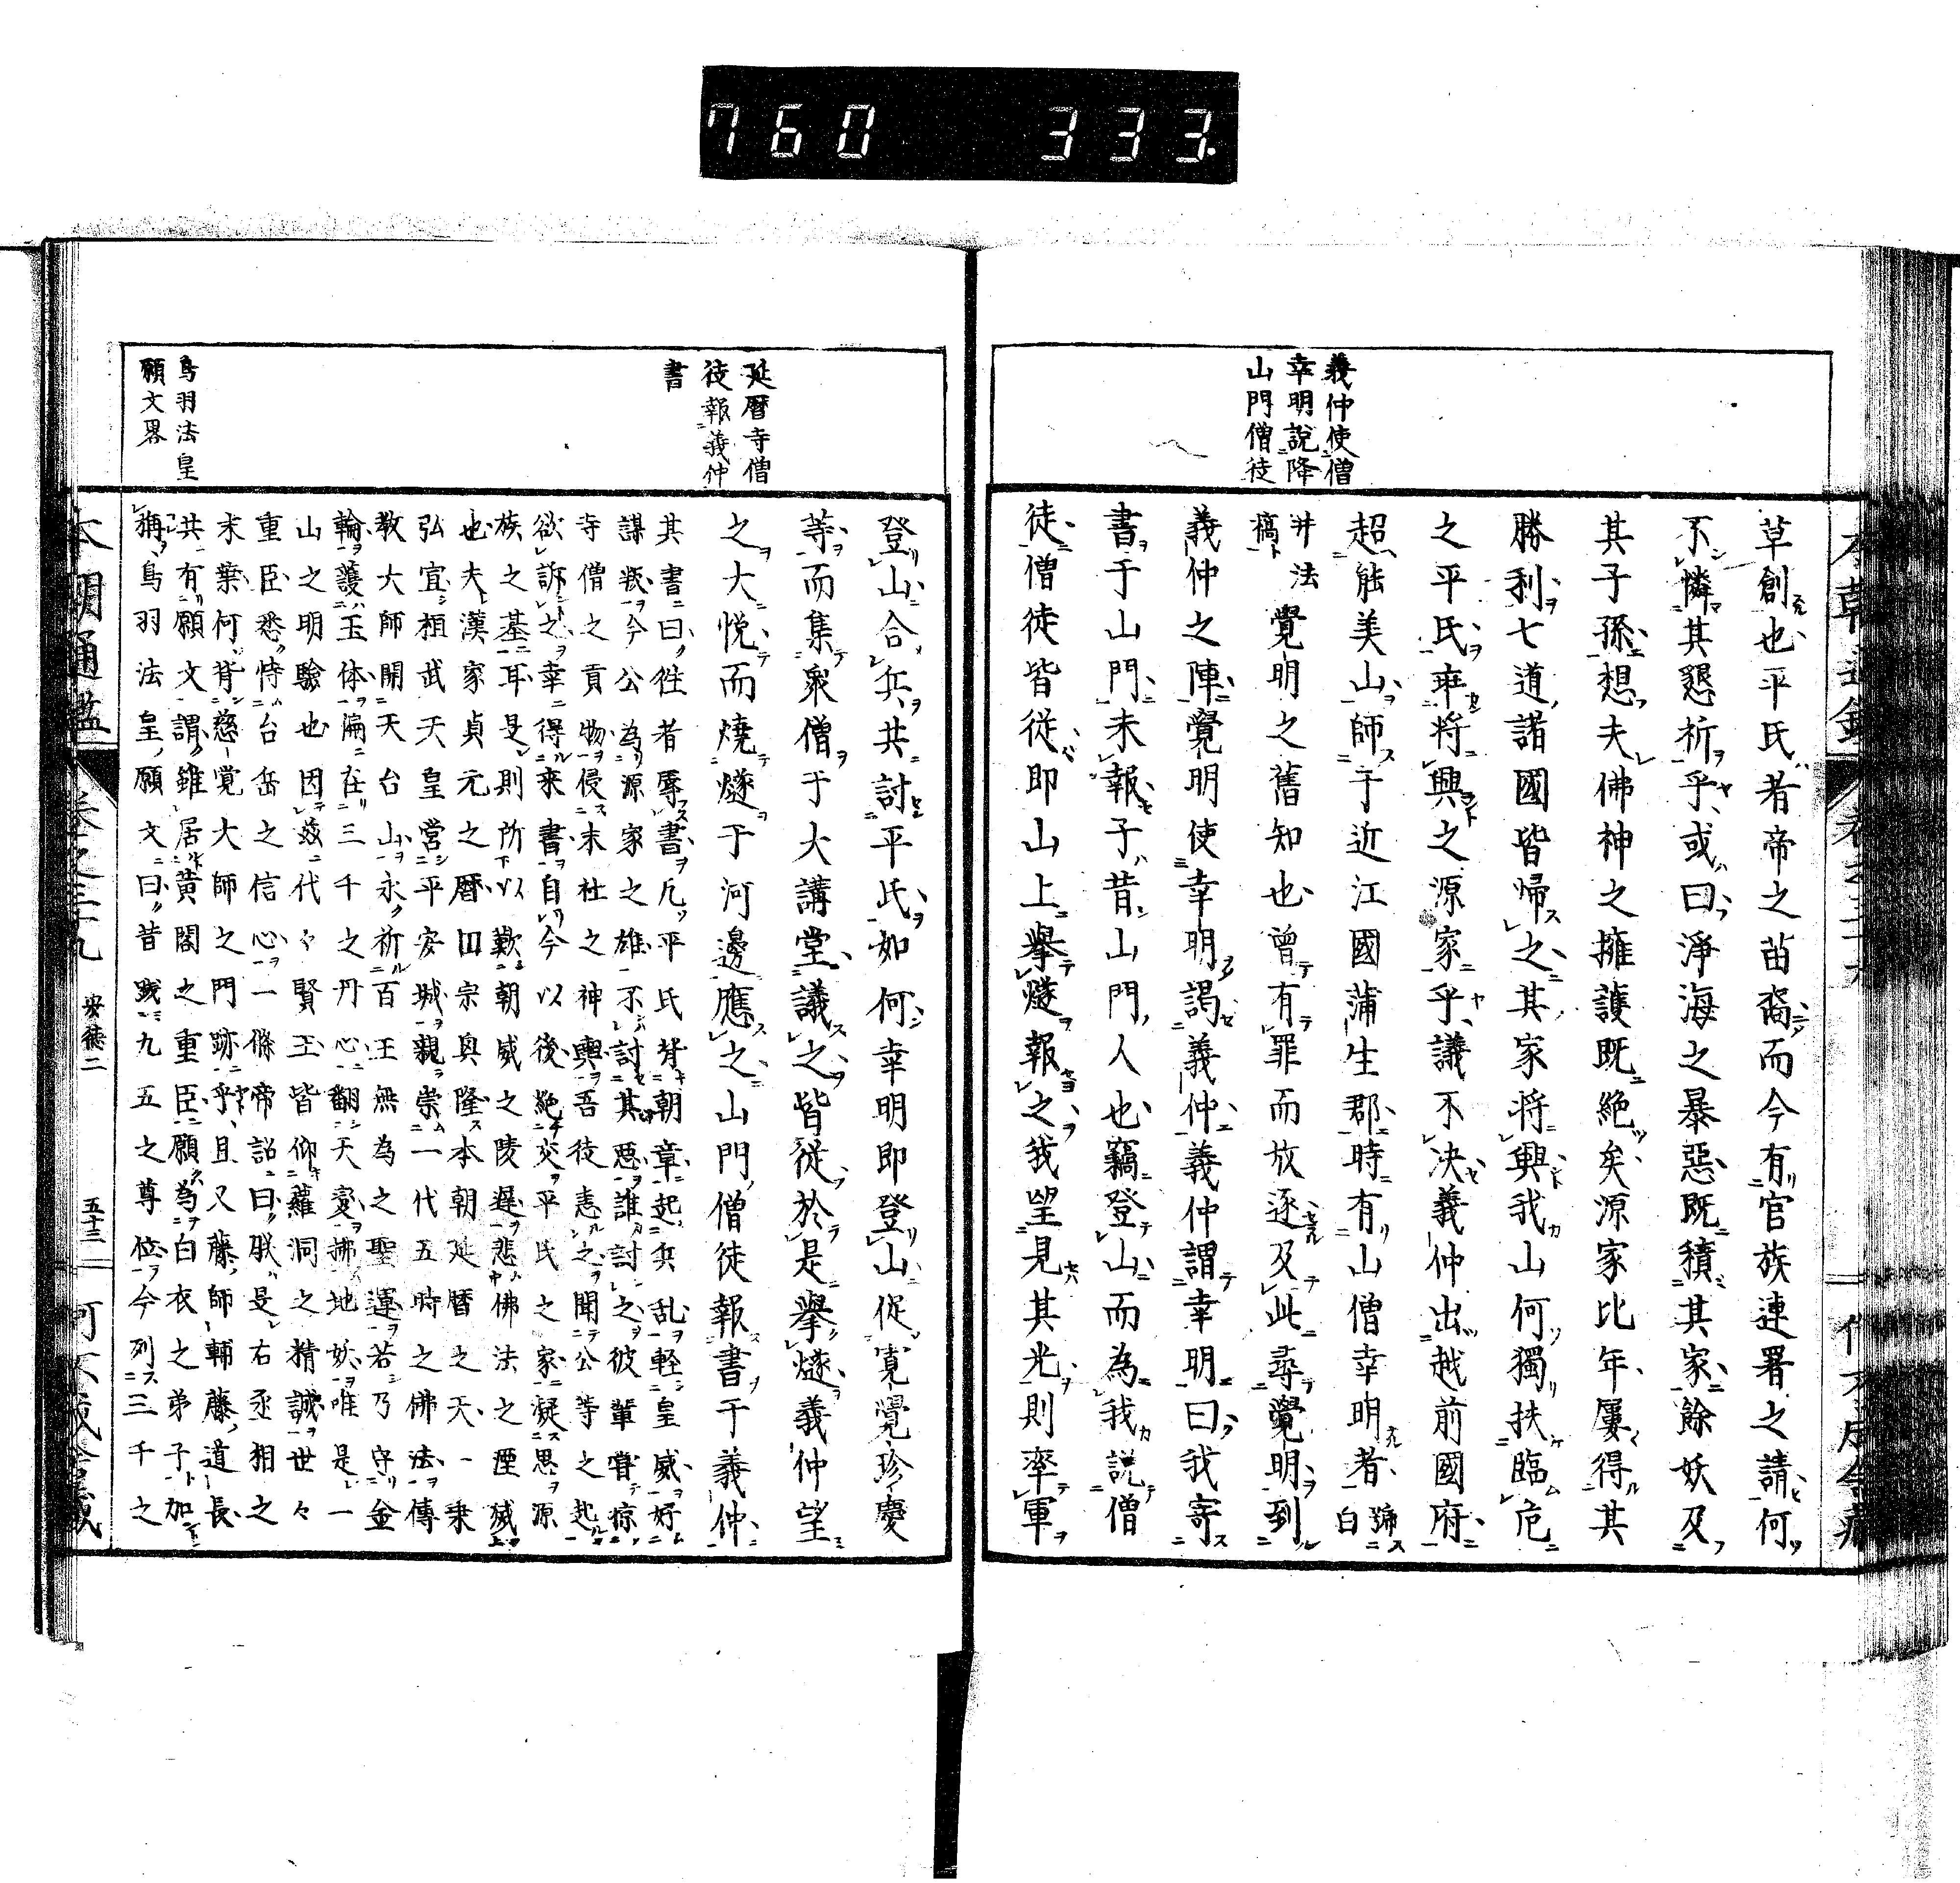 760 333
義仲使僧
幸明說降
山門僧徒
草創也平氏者帝之苗裔而今有官族連署之請何
不憐其懇祈乎或曰淨海之暴惡既積其家餘妖及
其子孫想夫佛神之擁護既絶矣源家比年屢得其
勝利七道諸國皆帰之其家將興我山何獨扶臨危
之平氏乖將興之源家乎議不决義仲出越前國府
超能美山師于近江國蒲生郡時有山僧幸明者號白
井法橋覺明之舊知也曾有罪而放逐及此尋覺明到
義仲之陣覺明使幸明謁義仲義仲謂幸明曰我寄
書于山門未報子昔山門人也竊登山而為我説僧
徒僧徒皆從即山上擧燧報之我望見其光則率軍
延暦寺僧
徒報義仲
書
鳥羽法皇
願文畧
登山合兵共討平氏如何幸明即登山促寛覺珍慶
等而集衆僧于大講堂議之皆從於是擧燧義仲望
之大悦而燒燧于河邊應之山門僧徒報書于義仲
其書曰徃者辱書凢平氏背朝章起兵乱軽皇威好
謀叛今公為源家之雄不討其悪誰討之彼輩嘗掠
寺僧之貢物侵末社之神輿吾徒恚之聞公等之起
欲訴之幸得来書自今以後絶交平氏之家凝思源
族之基耳是則所以歎朝威之陵遅悲佛法之湮滅
也夫漢家貞元之暦圓宗興隆本朝延暦之天一乗
弘宜桓武天皇営平安城親崇一代五時之佛法傳
教大師開天台山永祈百王無為之聖運若乃守金
輪護玉体遍在三千之丹心翻天変拂地妖唯是一
山之明驗也因茲代々賢王皆仰蘿洞之精誠世々
重臣悉恃台岳之信心一條帝詔曰朕是右丞相之
末葉何背慈覚大師之門跡乎且又藤師輔藤道長
共有願文謂雖居黄閣之重臣願為白衣之弟子加
稱鳥羽法皇願文曰昔踐九五之尊位今列三千之
本朝通鑑 卷之三十九 安徳二 五十三